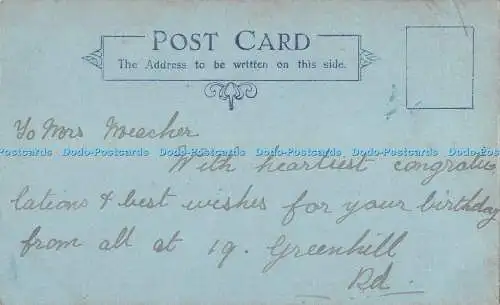 POST CARD
The Address to be written on this side.
To Mrs Meacher.
Dodo-Postcards Dodo-Postcards Dodo-Postcards Dodo-Postcards Dodo-Postcards Dodo-Postcards
With heartiest congratu
lations & best wishes for your birthday
from all at 19. Greenhill
Rd.